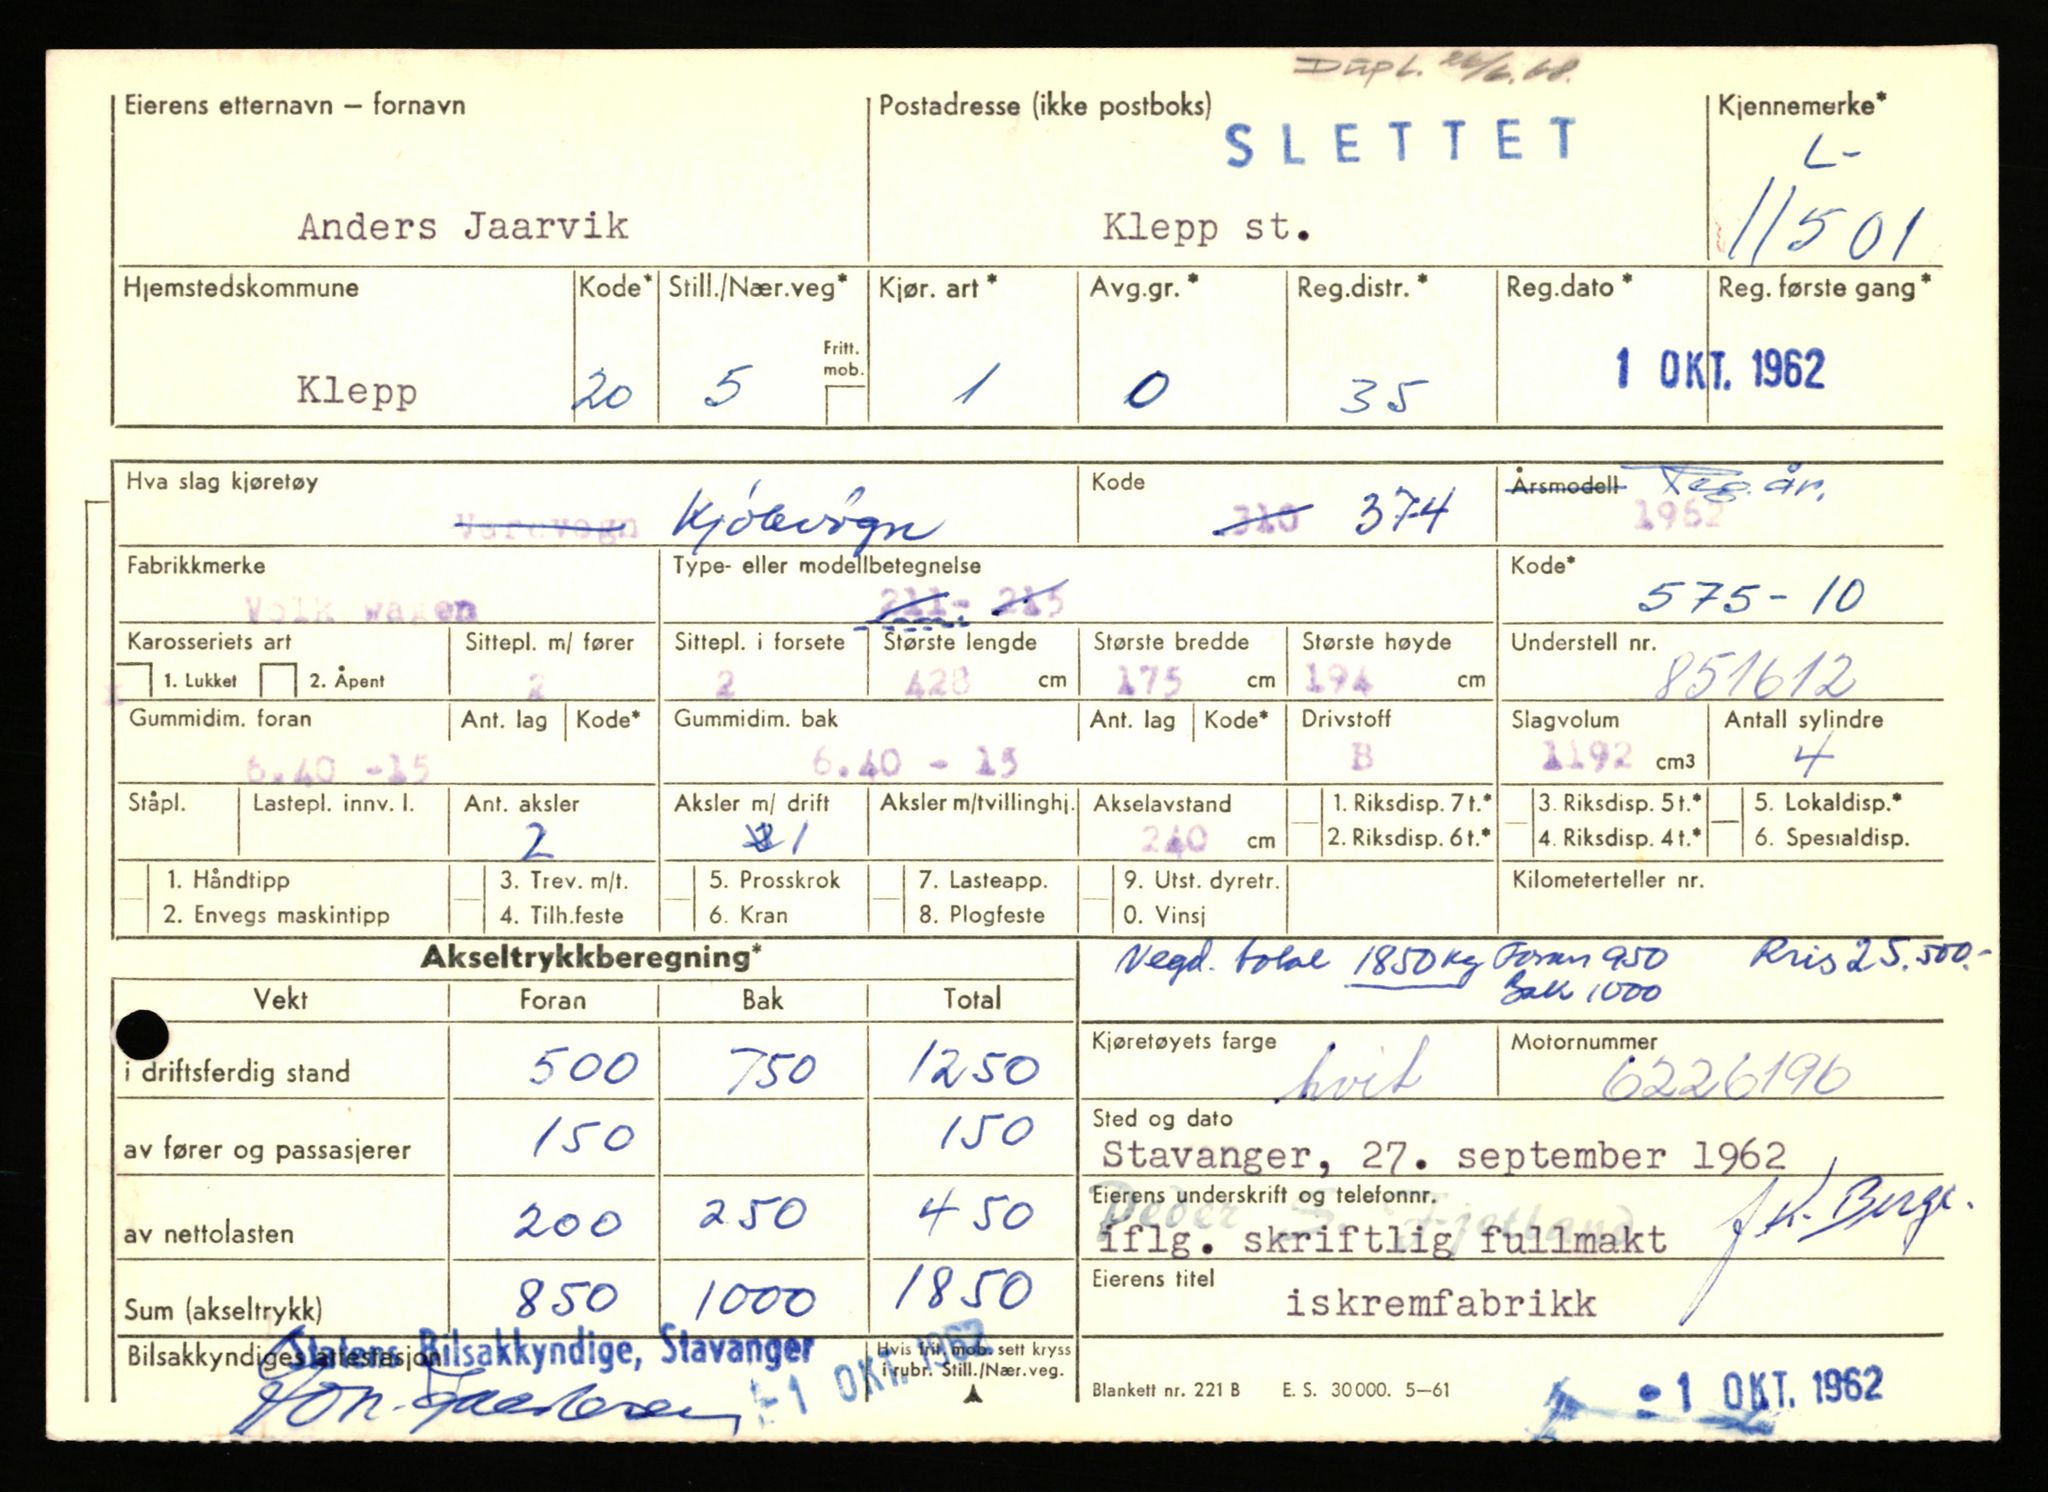 Dupl. 26/6.68.
Eierens etternavn – fornavn
Postadresse (ikke postboks)
Kjennemerke*
SLETTET
L-
11501
Anders Jaarvik
Klepp st.
Hjemstedskommune Kode* Still./Nær.veg* Kjør. art* Avg.gr.* Reg.distr.* Reg.dato* Reg. første gang*
Fritt. mob.
Klepp 20 5 1 0 35 1 OKT. 1962
Hva slag kjøretøy Kode Årsmodell Reg. år.
Varevogn Kjølevogn 310 374 1962
Fabrikkmerke Type- eller modellbetegnelse Kode*
Volk wagen 211- 215 575-10
Karosseriets art Sittepl. m/ fører Sittepl. i forsete Største lengde Største bredde Største høyde Understell nr.
x 1. Lukket 2. Åpent 2 2 428 cm 175 cm 194 cm 851612
Gummidim. foran Ant. lag Kode* Gummidim. bak Ant. lag Kode* Drivstoff Slagvolum Antall sylindre
6.40 -15 6.40 - 15 B 1192 cm3 4
Ståpl. Lastepl. innv. l. Ant. aksler Aksler m/ drift Aksler m/tvillinghj. Akselavstand 1. Riksdisp. 7 t.* 3. Riksdisp. 5 t.* 5. Lokaldisp.*
2 1 240 cm 2. Riksdisp. 6 t.* 4. Riksdisp. 4 t.* 6. Spesialdisp.
1. Håndtipp 3. Trev. m/t. 5. Prosskrok 7. Lasteapp. 9. Utst. dyretr. Kilometerteller nr.
2. Envegs maskintipp 4. Tilh.feste 6. Kran 8. Plogfeste 0. Vinsj
Akseltrykkberegning*
Vegd. total 1850 kg Foran 950 Pris 25.500.-
Bak 1000
Vekt Foran Bak Total
i driftsferdig stand 500 750 1250
Kjøretøyets farge Motornummer
hvit 6226196
av fører og passasjerer 150 150
Sted og dato
Stavanger, 27. september 1962
av nettolasten 200 250 450
Eierens underskrift og telefonnr.
Peder S. Fjetland
iflg. skriftlig fullmakt J.K. Berge.
Sum (akseltrykk) 850 1000 1850
Eierens titel
iskremfabrikk
Bilsakkyndiges attestasjon
Statens Bilsakkyndige, Stavanger
-1 OKT. 1962
Hvis frit. mob. sett kryss
i rubr. Still./Nær.veg.
Blankett nr. 221 B E. S. 30000. 5–61
-1 OKT. 1962